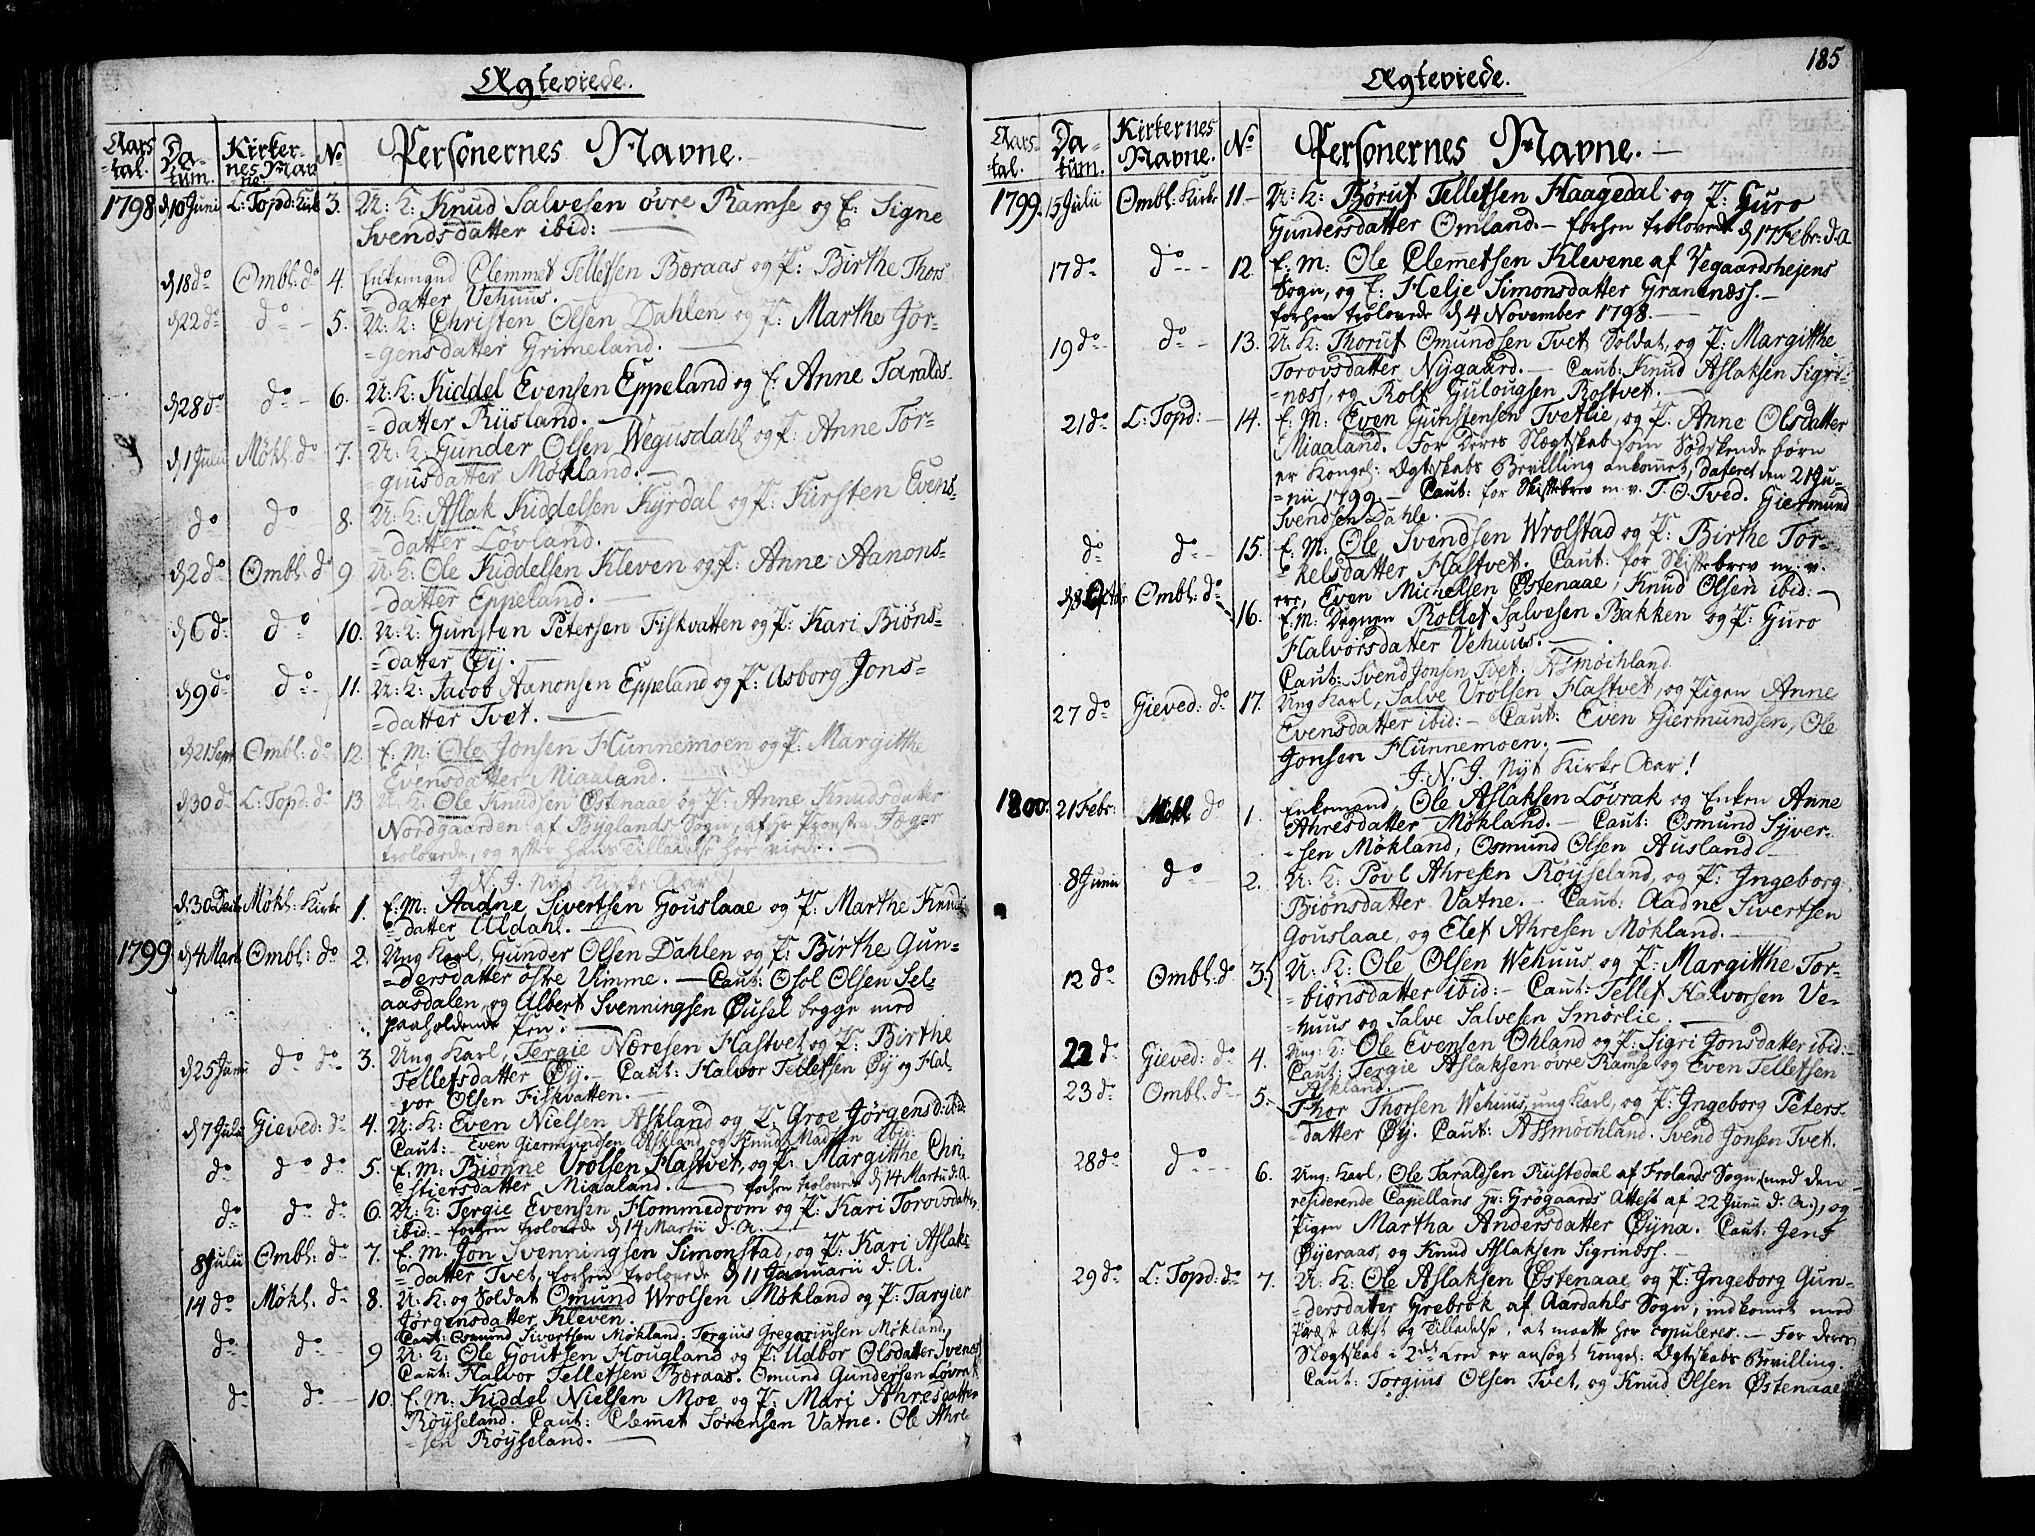 Ægteviede.
Aars tal. Da- tum. Kirker- nes Nav ne No Personernes Navne.
1798 d 10 Juni L: Topd: Kirk 3. U: K: Knud Salvesen övre Ramse og E: Signe
Svendsdatter ibid:
d 18 do Ombl: do 4. Enkemand Clemmet Tellefsen Bæraas og P: Birthe Thors-
=datter Vehuus.
d 22 do do 5. U: K: Christen Olsen Dahlen og P: Marthe Jör-
=gensdatter Grimeland.
d 28 do do 6. U: K: Kiddel Evensen Eppeland og E: Anne Taralds-
=datter Riisland.
d 1 Julii Mökl: do 7. U: K: Gunder Olsen Wegusdahl og P: Anne Tor-
=guisdatter Mökland.
do do 8. U: K: Aslak Kiddelsen Kyrdal og P: Kirsten Evens-
=datter Lövland.
d 2 do Ombl: do 9. U: K: Ole Kiddelsen Kleven og P: Anne Aanons-
=datter Eppeland.
d 6 do do 10. U: K: Gunsten Petersen Fiskvatten og P: Kari Biöns-
=datter Øij.
d 9 do do 11. U: K: Jacob Aanonsen Eppeland og P: Asborg Jons-
=datter Tvet.
d 21 Sept Ombl: do 12. E: M: Ole Jonsen Hunnemoen og P: Margitthe
Evensdatter Miaaland.
d 30 do L: Topd: do 13. U: K: Ole Knudsen Østenaae og P: Anne Knudsdatter
Nordgaarden af Byglands Sogn, af Hr Provsten Jæger
trolovede, og efter hans Tilladelse her viede.
J. N. J. Nyt Kirke Aar!
d 30 Decbr Mökl: Kirke 1. E: M: Aadne Sivertsen Gouslaae og P: Marthe Knud
datter Uldahl.
1799 d 4 Mart Ombl: do 2. Ung Karl, Gunder Olsen Dahlen og P: Birthe Gun-
=dersdatter östre Vimme. — Caut: Osol Olsen Sel-
aasdalen, og Albert Svenningsen Øusel begge med
paaholdende Pen:
d 25 Junii do do 3. Ung Karl, Tergie Næresen Hastvet og P: Birthe
Tellefsdatter Øij. — Caut: Halvor Tellefsen Øij og Hal-
vor Olsen Fiskvatten.
d 7 Julii Gieved: do 4. U: K: Even Nielsen Askland og P: Groe Jörgensd: ibid:
Caut: Even Giermundsen Askland og Knud Madsen ibid:
do do do 5. E: M: Bionne Vrolsen Hastvet, og P: Margitthe Chri-
stiersdatter Miaaland. — forhen trolovede d 14 Martii d. A.
do do do 6. U: K: Tergie Evensen Hommedrom og P: Kari Torovsdatter
ibid: — forhen trolovede d 14 Martii d. A.
8 Julii Ombl: do 7. E: M: Jon Svenningsen Simonstad, og P: Kari Aslaks-
=datter Tvet, forhen trolovede d 11 Januarii d. A.
14 do Mökl. do 8. U: K: og Soldat Omund Wrolsen Mökland og P: Targier
Jörgensdatter Kleven.
Caut: Osmund Sivertsen Mökland. Tergius Gregariusen Mökland.
do do 9 U: K: Ole Goutsen Hougland og P: Udbor Olsdatter Svenæs
Caut: Halvor Tellefsen Bæraas. Omund Gundersen Lövrak
do do 10. E: M: Kiddel Nielsen Moe og P: Mari Ahresdatter
Röyseland. Caut: Clemet Sörensen Vatne. Ole Ahre
=sen Röyseland.
185
Ægteviede.
Aars- tal. Da- tum. Kirkernes Navne. No Personernes Navne.
1799. 15 Julii Ombl: Kirke 11. U: K: Böruf Tellefsen Haagedal og P: Guro
Gundersdatter Omland. — forhen trolovede d 17 Febr: d. A
17 do do 12. E: M: Ole Clemetsen Klevene af Vegaardshejens
Sogn, og E: Helje Simonsdatter Grannæss.
forhen trolovede d 4 November 1798.
19 do do 13. U: K: Thoruf Omundsen Tvet Soldat, og P: Margitthe
Torovsdatter Nygaard. — Caut: Knud Aslaksen Sigri-
=næss, og Rolf Gulougsen Rostvet.
21 do L: Topd: 14. E: M: Even Gunstensen Tvetlie, og P. Anne Olsdatter
Miaaland. For Deres Slægtskab som Södskende börn
er Kongel: Ægtskabs Bevilling ankommet, dateret den 21 Ju-
=nii 1799. — Caut: for Skiftebrev m. v. T. O. Tved. Giermund
Svendsen Dahle.
do do 15. E: M: Ole Svendsen Wrolstad og P: Birthe Tor-
=kelsdatter Hastvet. Caut: for Skiftebrev m: v.
ere, Even Michelsen Østenaae, Knud Olsen ibid:
d 8 Octbr Ombl: do 16. E: M: Degnen Rollef Salvesen Bakken og P: Guro
Halvorsdatter Vehuus.
Caut: Svend Jonsen Tvet, A. Möchland
27 do Gieved: do 17. Ung Karl, Salve Vrolsen Hastvet, og Pigen Anne
Evensdatter ibid: — Caut: Even Giermundsen, Ole
Jonsen Hunnemoen.
J. N. J. Nyt Kirke Aar!
1800. 21 Febr: Mökl do 1. Enkemand Ole Aslaksen Lövrak og Enken Anne
Ahresdatter Mökland. — Caut: Osmund Syver-
=sen Mökland, Osmund Olsen Ausland
8 Junii do 2. U: K: Povl Ahresen Röyseland, og P: Ingeborg
Biönsdatter Vatne. — Caut: Aadne Sivertsen
Gouslaae, og Elef Ahresen Mökland.
12 do Ombl: do 3. U: K: Ole Olsen Wehuus og P: Margitthe Tor-
=biönsdatter ibid: — Caut: Tellef Halvorsen Ve-
=huus og Salve Salvesen Smörlie.
22 do Gieved: do 4. Ung K: Ole Evensen Ohland og P: Sigri Jonsdatter ibid:
Caut: Tergie Aslaksen övre Ramse og Even Tellefsen
Askland.
23 do Ombl: do 5. Thor Thorsen Wehuus, ung Karl, og P: Ingeborg Peters-
=datter Øij. Caut: A. Möchland. Svend Jonsen Tvet.
28 do do 6. Ung Karl, Ole Taraldsen Rustedal af Frolands Sogn (med den
residerende Capellans Hr: Grögaards Attest af 22 Junii d. A:), og
Pigen Martha Andersdatter Øyna. Caut: Jens
Øijeraas, og Knud Aslaksen Sigrinæss.
29 do L: Topd: do 7. U: K: Ole Aslaksen Østenaae og P: Ingeborg Gun-
=dersdater Grebrok af Aardahls Sogn, indkomet med
Præste Attest og Tilladelse, at maatte her copuleres. — For deres
Slægtskab i 2det Leed er ansögt Kongel: Ægtskabs Bevilling.
Caut: Törgius Olsen Tvet, og Knud Olsen Østenaae